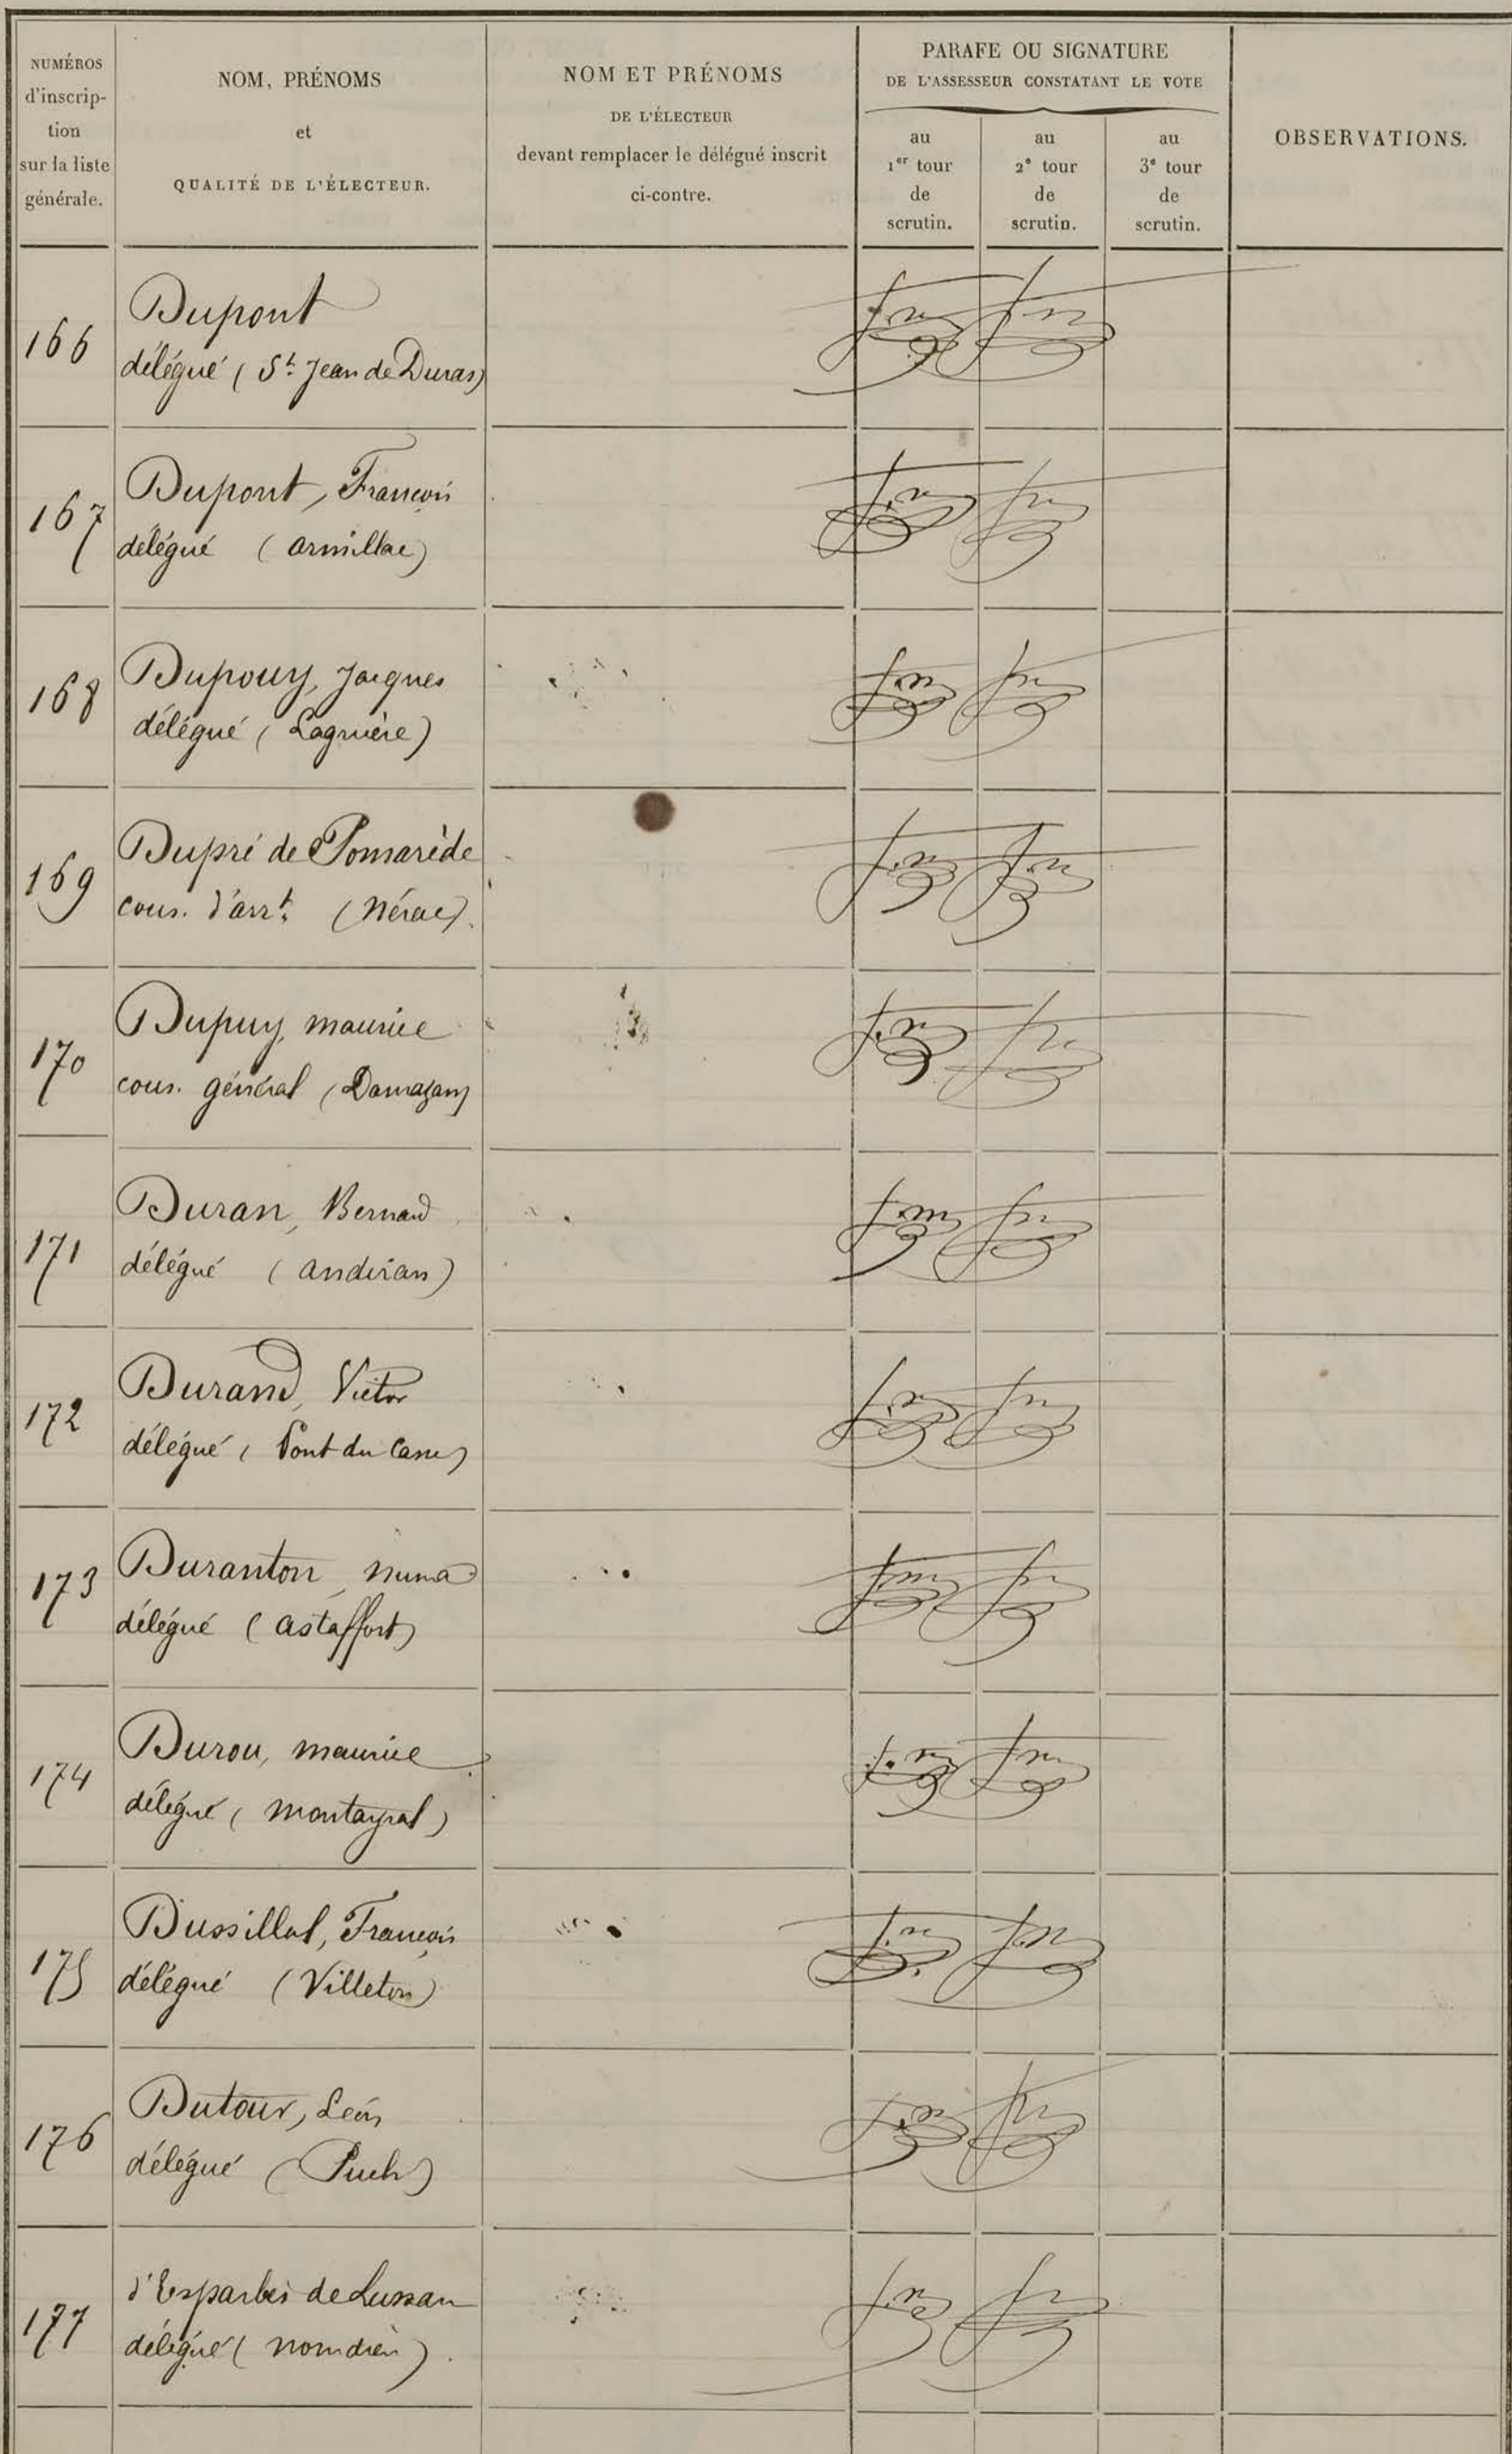 NUMÉROS
d'inscrip-
tion
sur la liste
générale.
NOM, PRÉNOMS
et
QUALITÉ DE L'ÉLECTEUR.
NOM ET PRÉNOMS
DE L'ÉLECTEUR
devant remplacer le délégué inscrit
ci-contre.
PARAFE OU SIGNATURE
DE L'ASSESSEUR CONSTATANT LE VOTE
au
1er tour
de
scrutin.
au
2e tour
de
scrutin.
au
3e tour
de
scrutin.
OBSERVATIONS.
166
Dupont
délégué (St. Jean de Duras)
167
Dupont, François
délégué (armillac)
168
Dupouy, Jacques
délégué (Lagruère)
169
Dupré de Pomarède
cons. d'arrt. (Nérac).
170
Dupuy, maurice
cons. général (Damazan)
171
Duran, Bernard
délégué (andiran)
172
Durand, Victor
délégué (Pont du Casse)
173
Duranton, numa
délégué (astaffort)
174
Durou, maurice
délégué (montayral)
175
Dussillol, François
délégué (Villeton)
176
Dutour, Léon
délégué (Puch)
177
d'Esparbès de Lussan
délégué (nomdieu).